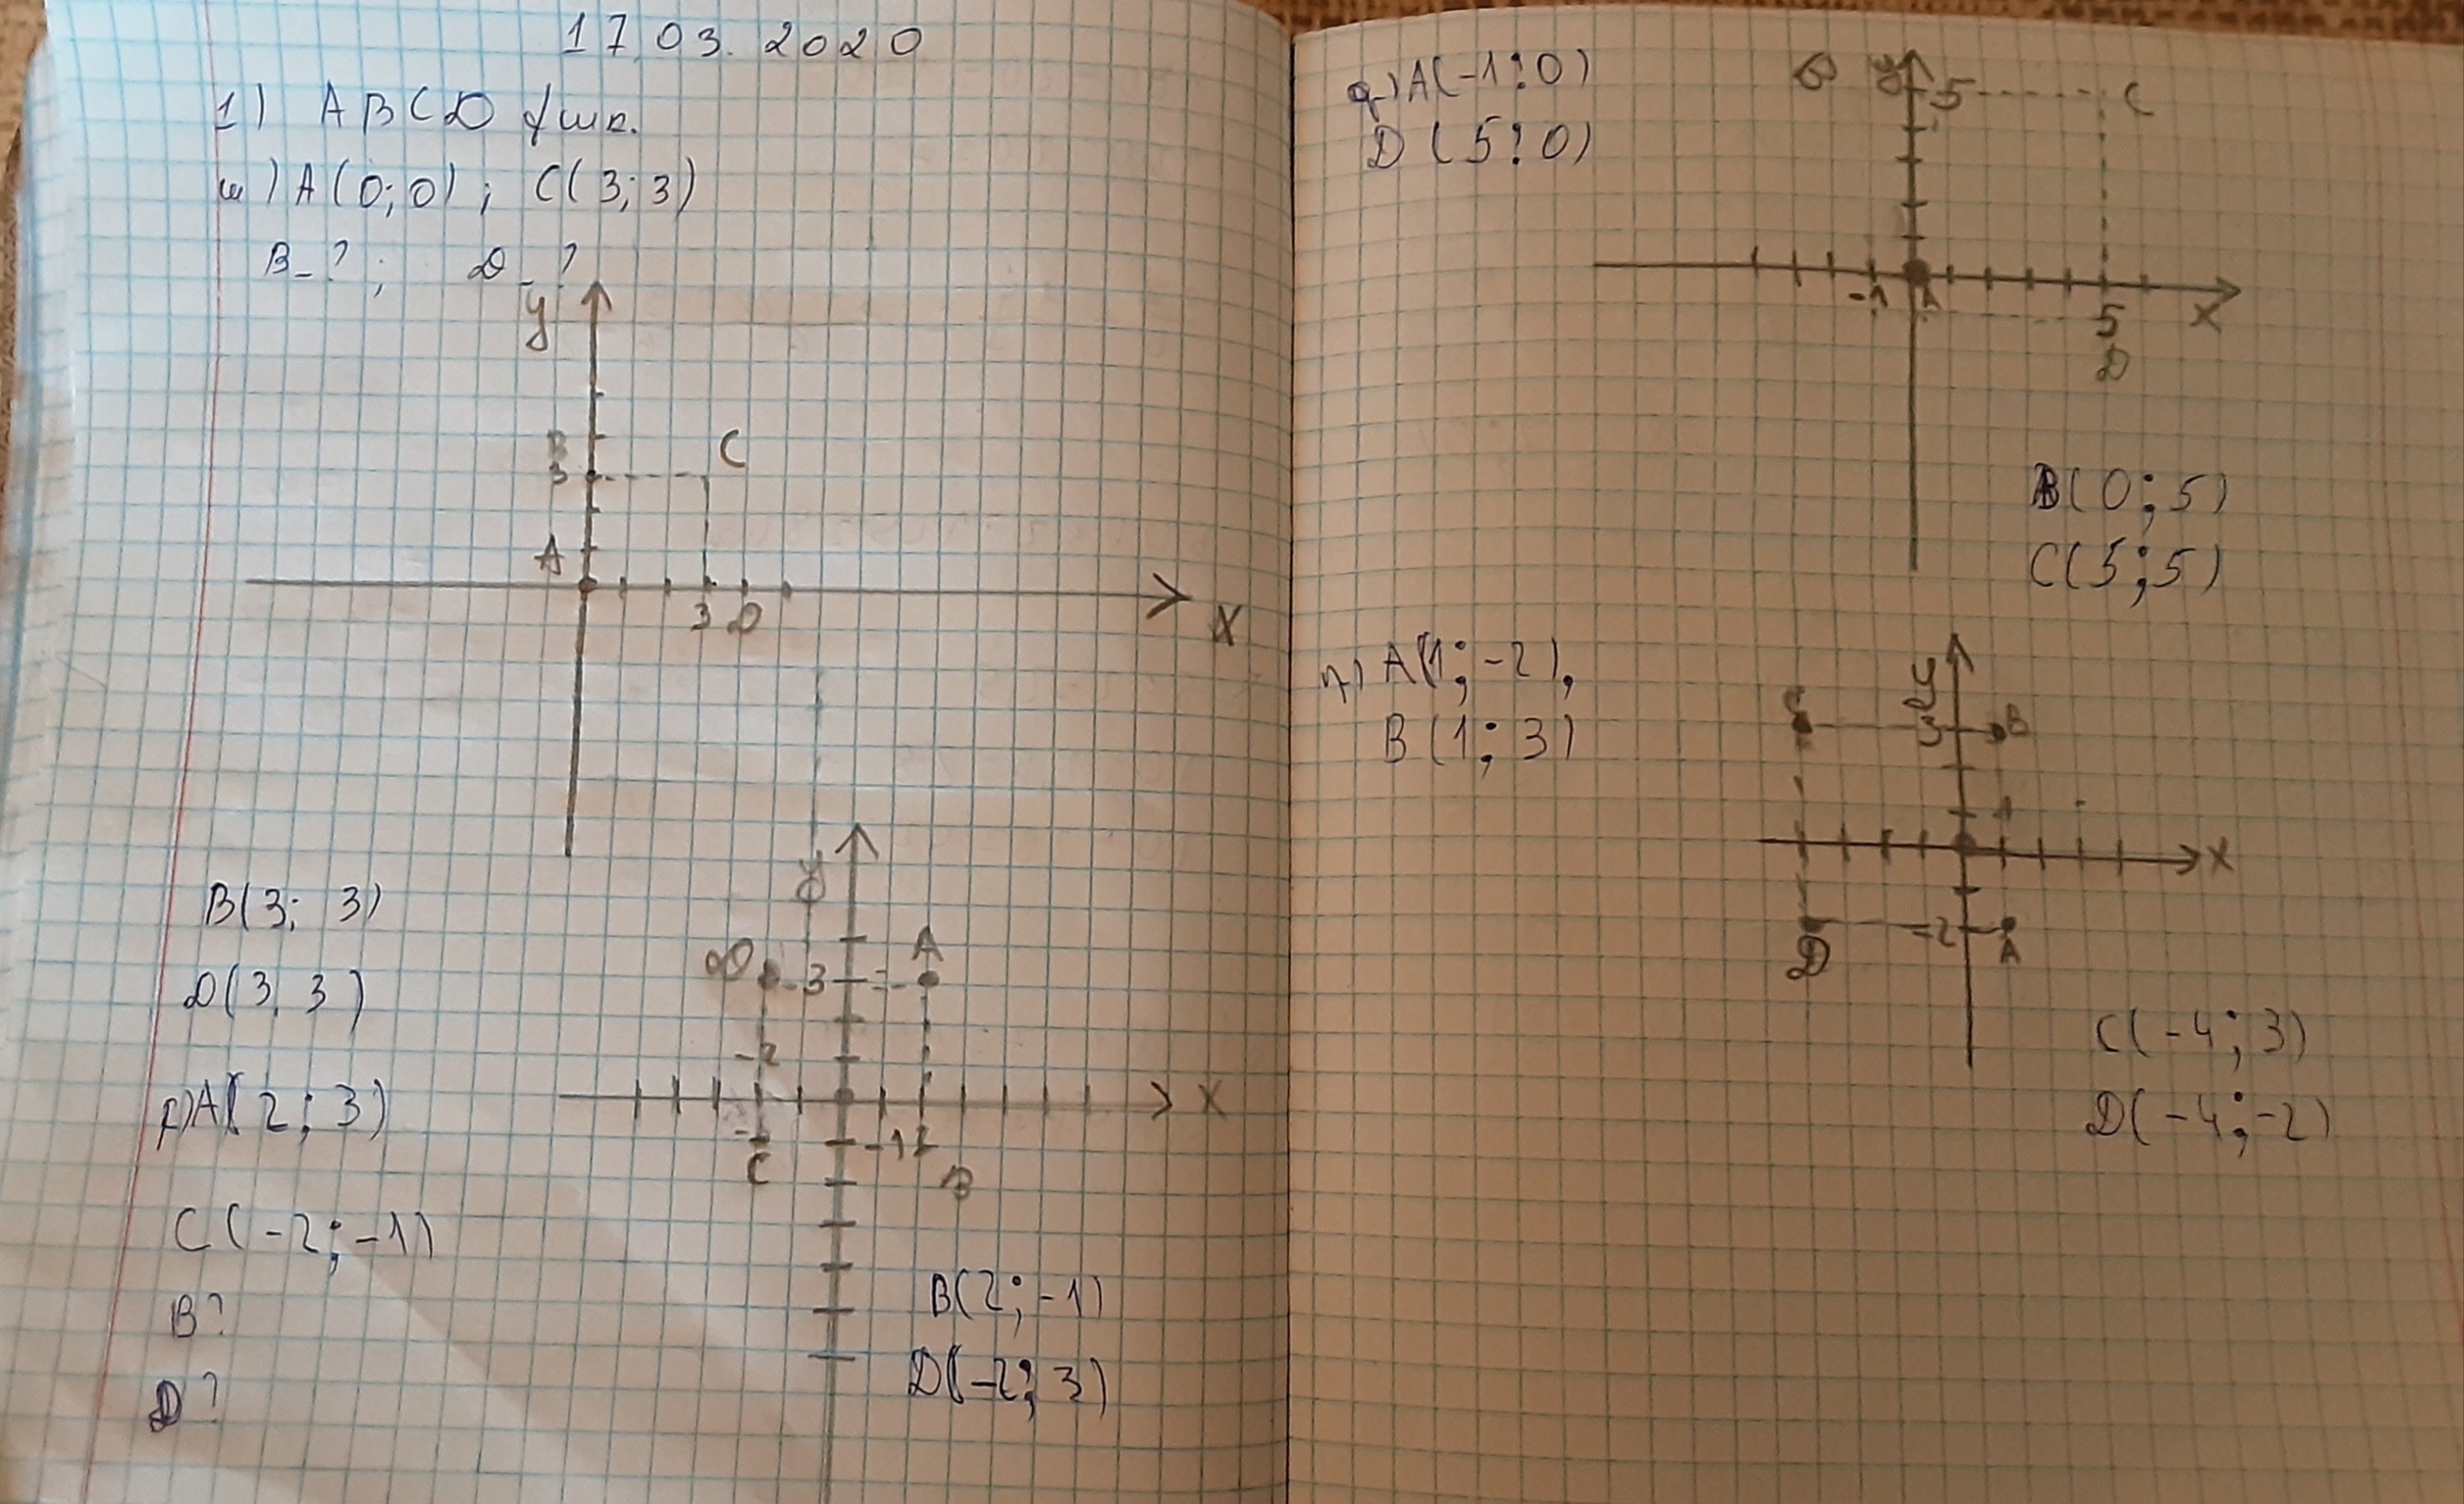 17.03.2020
1) ABCD քառ.
ա) A(0;0) ; C(3;3)
B_? ; D_?
y
B
3
C
A
3 D
X
B(3; 3)
D(3, 3)
y
A
D
3
-2
X
-1 2
C
B
բ) A(2; 3)
C(-2; -1)
B?
D?
B(2; -1)
D(-2; 3)
գ) A(-1; 0)
D(5; 0)
y
5
C
-1 A
5
X
D
B(0; 5)
C(5; 5)
դ) A(1; -2),
B(1; 3)
y
C
3
B
1
X
D
-2
A
C(-4; 3)
D(-4; -2)